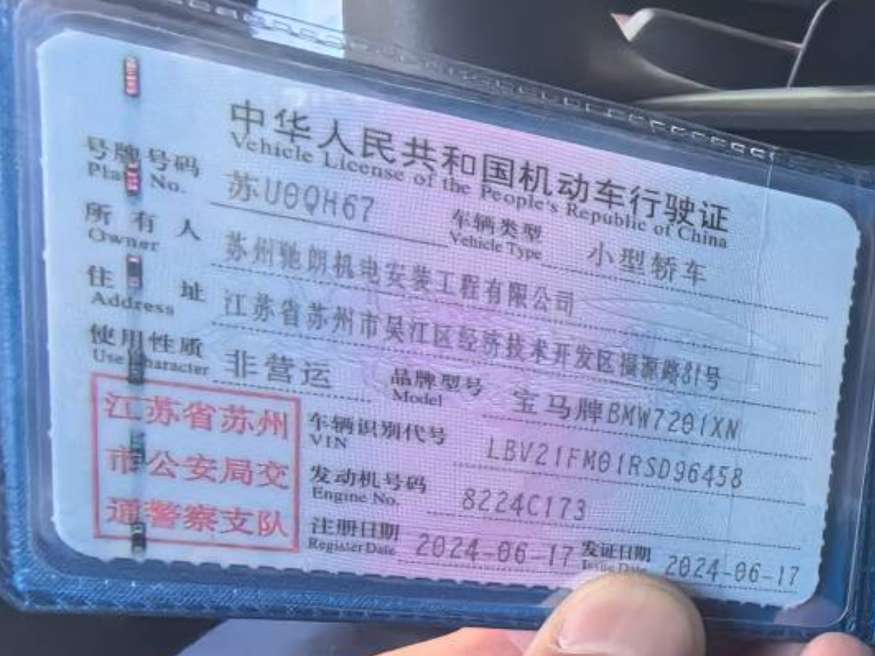 中华人民共和国机动车行驶证
Vehicle License of the People's Republic of China
号牌号码 苏U0QH67 车辆类型 小型轿车
Plate No. Vehicle Type
所有人 苏州驰朗机电安装工程有限公司
Owner
住址 江苏省苏州市吴江区经济技术开发区福源路81号
Address
使用性质 非营运 品牌型号 宝马牌BMW7201XN
Use Character Model
江苏省苏州
市公安局交
通警察支队
车辆识别代号 LBV21FM01RSD96458
VIN
发动机号码 8224C173
Engine No.
注册日期 2024-06-17 发证日期 2024-06-17
Register Date Issue Date